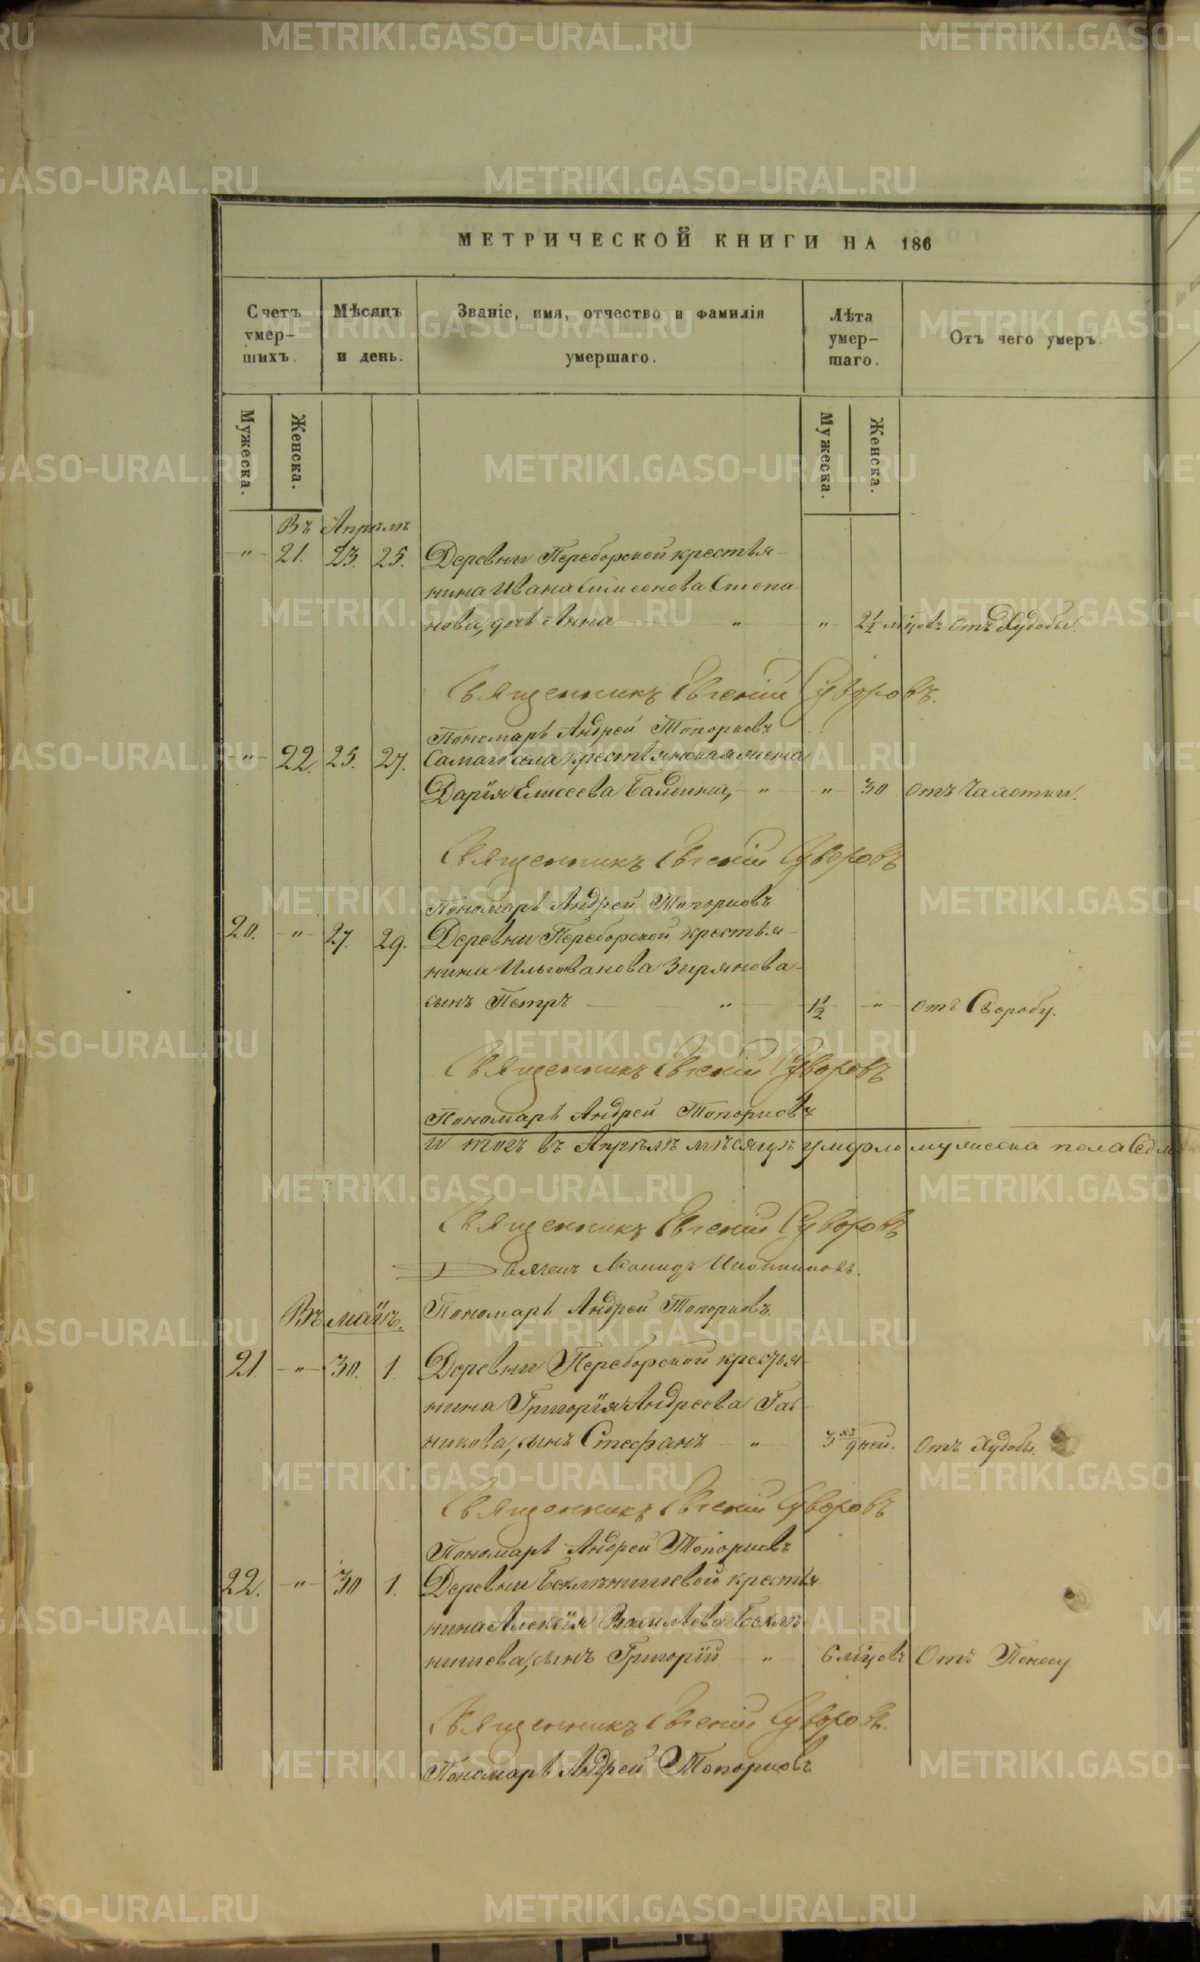 МЕТРИЧЕСКОЙ КНИГИ НА 186
Счетъ умер-шихъ.
Мѣсяцъ и день.
Званіе, имя, отчество и фамилія умершаго.
Лѣта умер-шаго.
Отъ чего умеръ.
Мужеска.
Женска.
Мужеска.
Женска.
Въ Апрѣлѣ
" 21. 23. 25. Деревни Переборской крестья-
нина Ивана Симеонова Степа
нова, дочь Анна " " 2½ мѣсцовъ отъ Худобы.
Священникъ Евгеній Суворовъ.
Пономарь Андрей Топорковъ
" 22. 25. 27. Самаго села крестьянская жена
Дарія Елисеева " " 30 отъ Чахотки.
Священникъ Евгеній Суворовъ
Пономарь Андрей Топорковъ
20. " 27. 29. Деревни Переборской крестья-
нина Ильи Иванова Зырянова
сынъ Петръ " 1½ " отъ Воробу.
Священникъ Евгеній Суворовъ
Пономарь Андрей Топорковъ
Итогъ въ Апрѣлѣ мѣсяцѣ умерло мужеска пола
Священникъ Евгеній Суворовъ
Дьяконъ Леонидъ
Въ маіѣ. Пономарь Андрей Топорковъ
21. " 30. 1. Деревни Переборской крестья-
нина Григорія Андреева Га-
никова, сынъ Стефанъ " 3хъ дней. отъ Худобы.
Священникъ Евгеній Суворовъ
Пономарь Андрей Топорковъ
22. " 30 1. Деревни Беклѣнищевой крестья
нина Алексѣя Васильева Беклѣ-
нищева, сынъ Григорій " 6 мѣсцовъ Отъ Поносу
Священникъ Евгеній Суворовъ.
Пономарь Андрей Топорковъ
METRIKI.GASO-URAL.RU